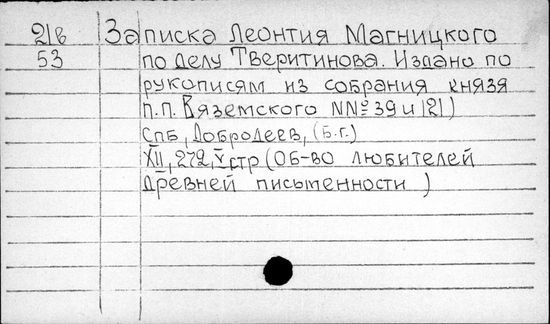 21в Записка Леонтия Магницкого
53 по делу Тверитинова. Издано по
рукописям из собрания князя
П.П. Вяземского NN° 39 и 121)
СПБ, Добродеев, (б.г.)
XII, 272, V стр (Об-во любителей
древней письменности)